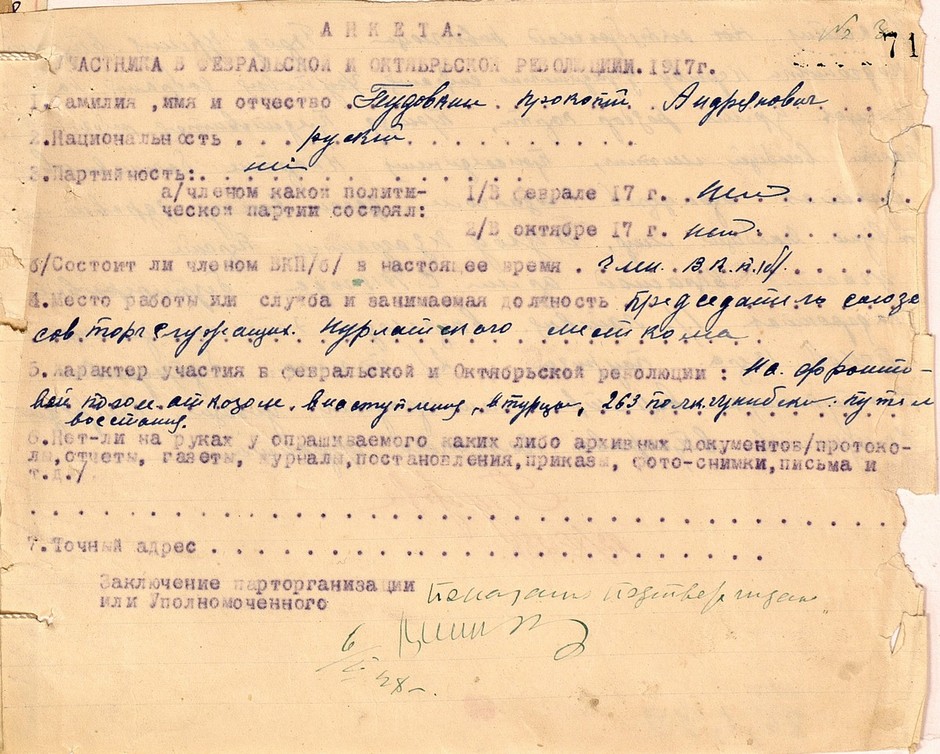 № 3
71
АНКЕТА.
УЧАСТНИКА В ФЕВРАЛЬСКОЙ И ОКТЯБРЬСКОЙ РЕВОЛЮЦИИИ.1917г.
1.Фамилия ,имя и отчество . Пудовкин Прокопт Андрянович
2.Национальность . . . руский
3.Партийность: . . ни
а/членом какой полити- 1/В феврале 17 г. . Нет
ческой партии состоял:
2/В октябре 17 г. нет
б/Состоит ли членом ВКП/б/ в настоящее время . член. В.К.П/б/.
4.Место работы или служба и занимаемая должность председатель союза
совторгслужащих Нурлатского месткома
5.Характер участия в февральской и Октябрьской революции : На фронто-
вой позом. отказом. внаступления, 263 полк. путем
восстания.
6.Нет-ли на руках у опрашиваемого каких либо архивных документов/протоко-
лы,отчеты, газеты, журналы,постановления,приказы, фото-снимки,письма и
т.д./
7.Точный адрес
Заключение парторганизации
или Уполномоченного Показание подтверждаю
6/ 28